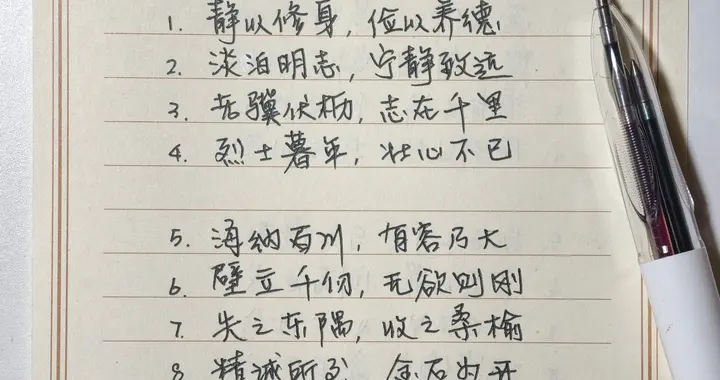 1. 静以修身，俭以养德
2. 淡泊明志，宁静致远
3. 老骥伏枥，志在千里
4. 烈士暮年，壮心不已
5. 海纳百川，有容乃大
6. 壁立千仞，无欲则刚
7. 失之东隅，收之桑榆
8. 精诚所至，金石为开